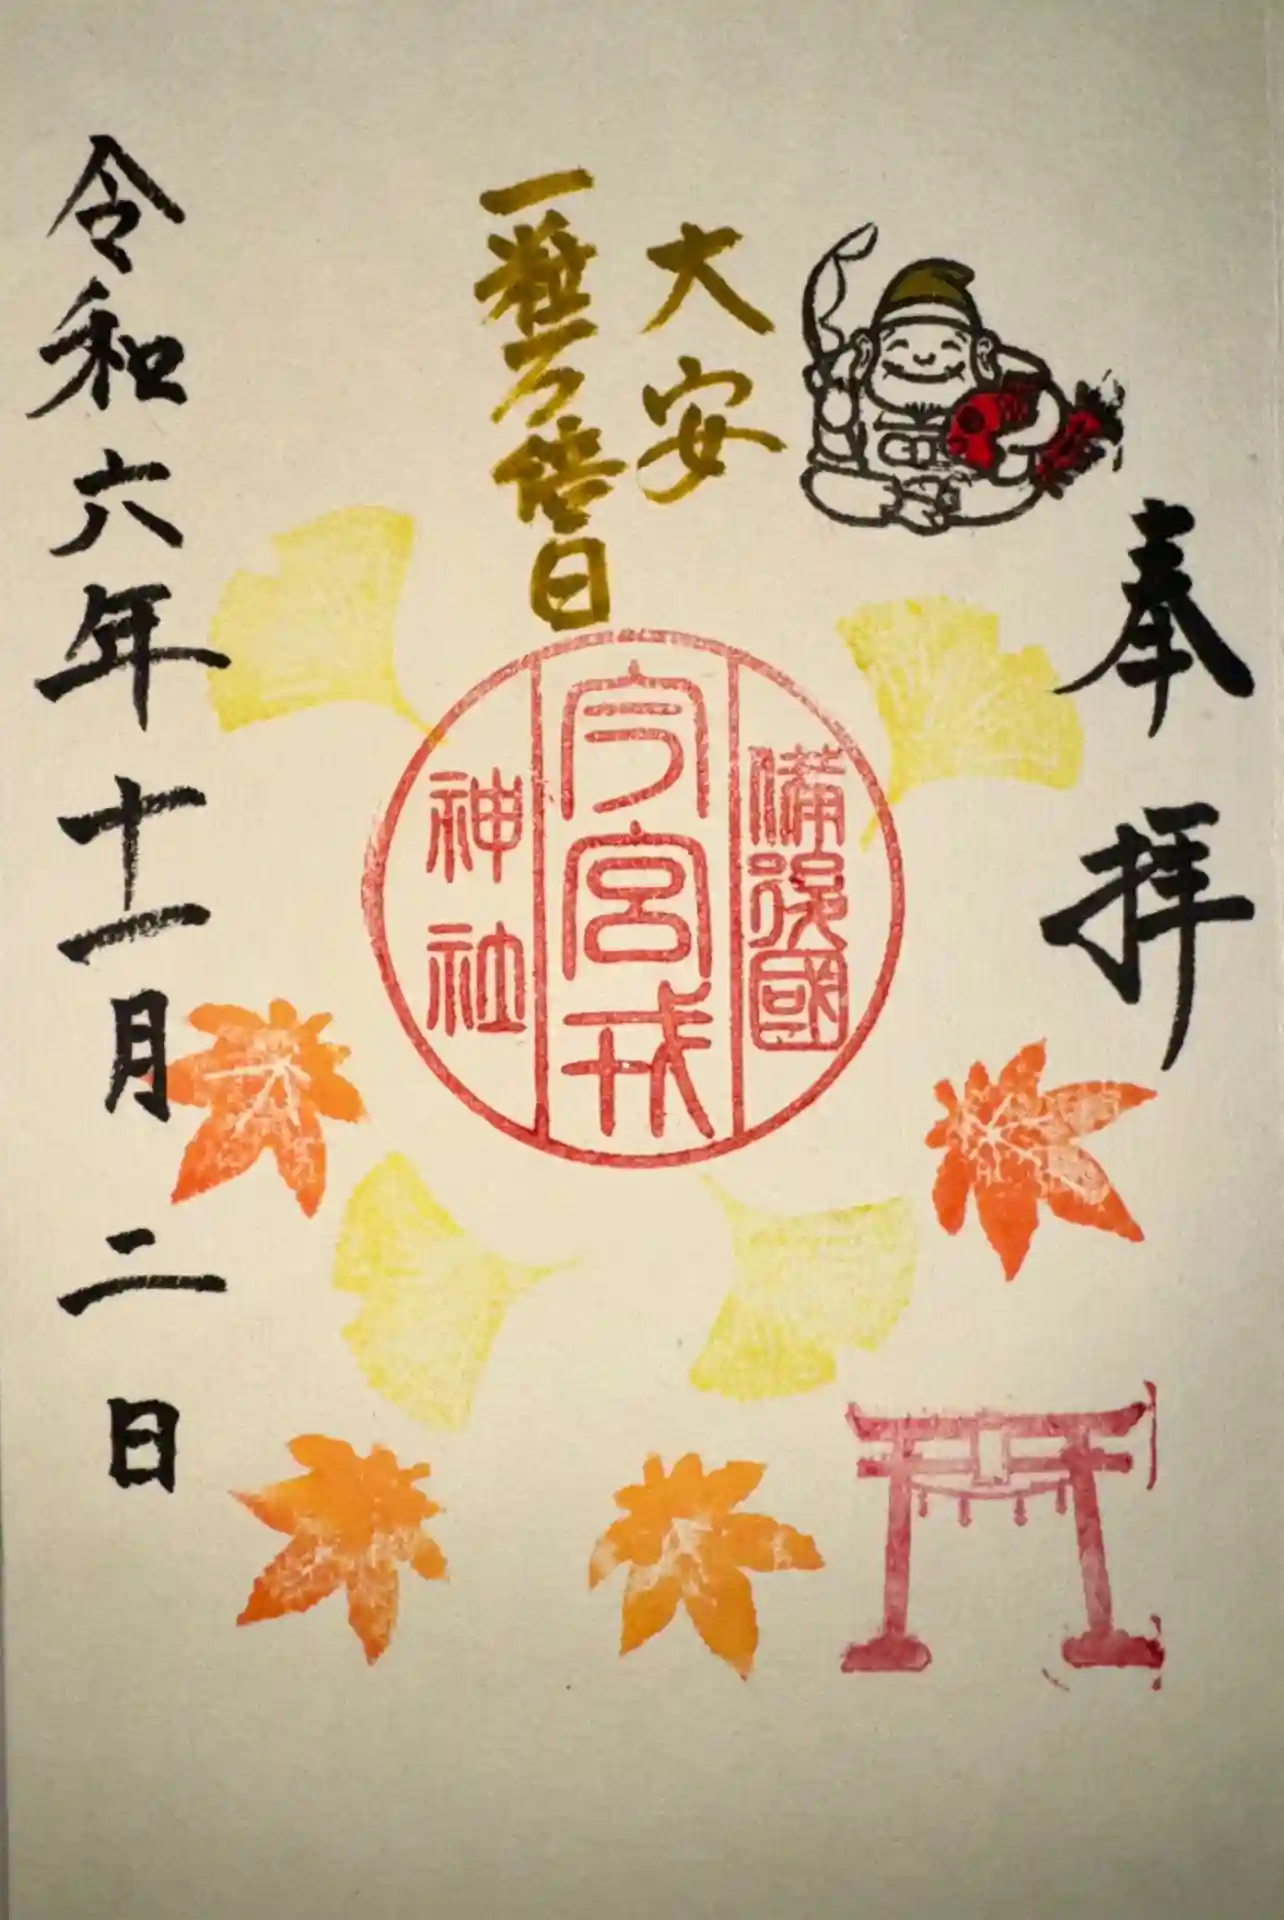 奉拝
大安
一粒万倍日
備後國
今宮戎
神社
令和六年十一月二日